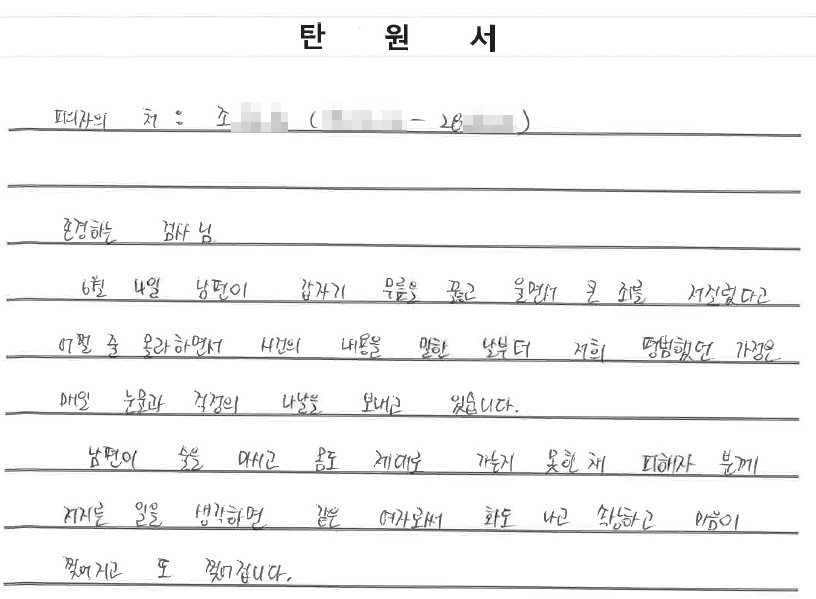 탄 원 서
피의자의 처 : 조 ( - 28 )
존경하는 검사님
6월 4일 남편이 갑자기 무릎을 꿇고 울면서 큰 죄를 저질렀다고
어쩔 줄 몰라하면서 사건의 내용을 말한 날부터 저희 평범했던 가정은
매일 눈물과 걱정의 나날을 보내고 있습니다.
남편이 술을 마시고 몸도 제대로 가눈지 못한 채 피해자 분께
저지른 일을 생각하면 같은 여자로써 화도 나고 속상하고 마음이
찢어지고 또 찢어집니다.